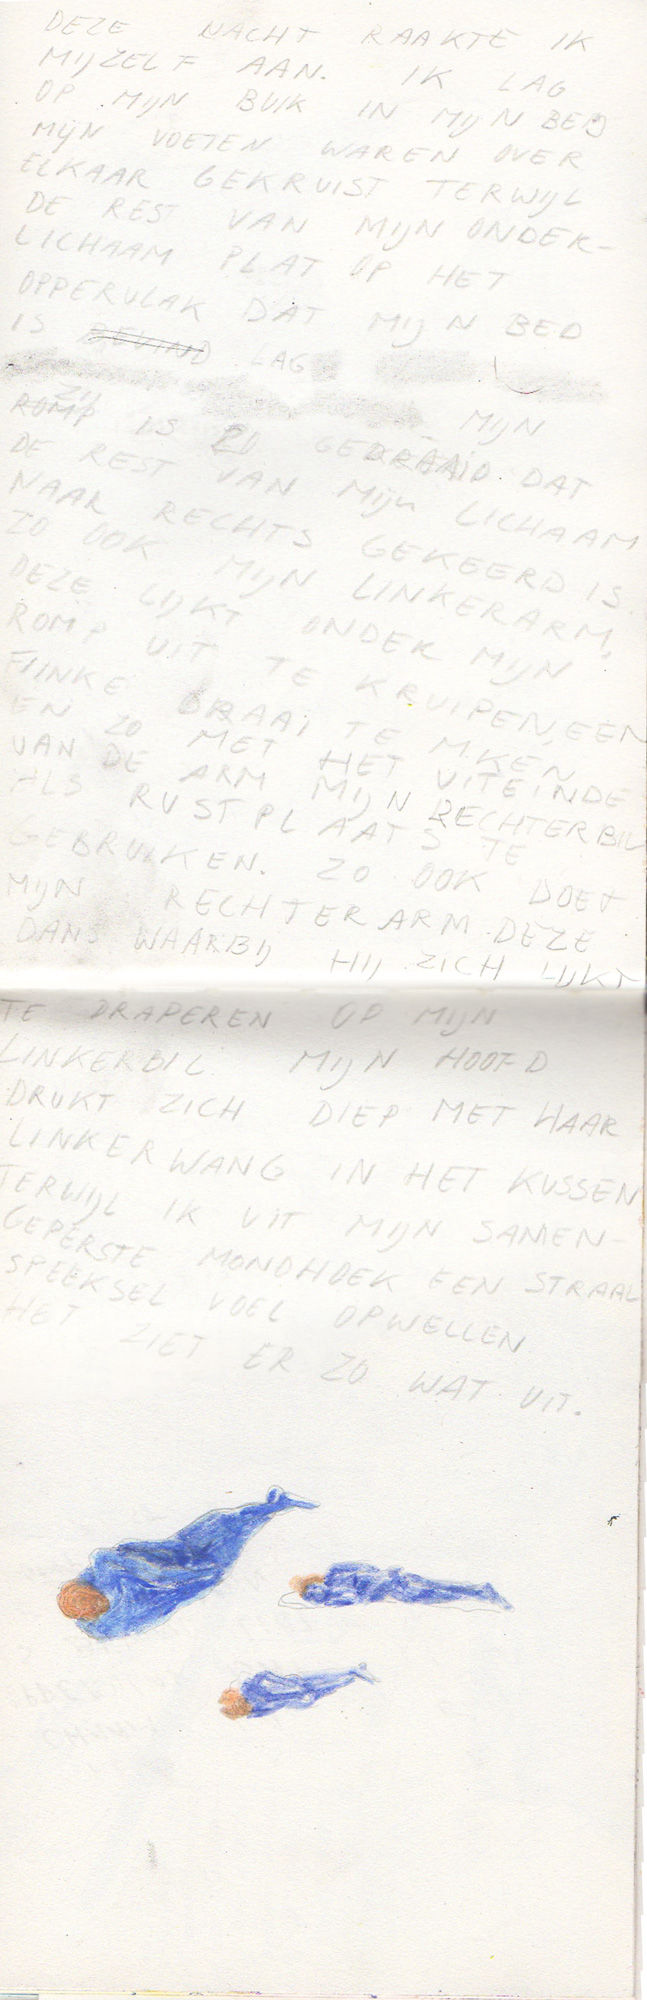 DEZE NACHT RAAKTE IK
MIJZELF AAN. IK LAG
OP MIJN BUIK IN MIJN BED
MIJN VOETEN WAREN OVER
ELKAAR GEKRUIST TERWIJL
DE REST VAN MIJN ONDER-
LICHAAM PLAT OP HET
OPPERVLAK DAT MIJN BED
IS LAG
MIJN
ROMP IS ZO GEDRAAID DAT ZIJ
DE REST VAN MIJN LICHAAM
NAAR RECHTS GEKEERD IS.
ZO OOK MIJN LINKERARM,
DEZE LIJKT ONDER MIJN
ROMP UIT TE KRUIPEN, EEN
FLINKE DRAAI TE MKEN
EN ZO MET HET UITEINDE
VAN DE ARM MIJN RECHTERBIL
ALS RUSTPLAATS TE
GEBRUIKEN. ZO OOK DOET
MIJN RECHTERARM DEZE
DANS WAARBIJ HIJ ZICH LIJKT
TE DRAPEREN OP MIJN
LINKERBIL. MIJN HOOFD
DRUKT ZICH DIEP MET HAAR
LINKERWANG IN HET KUSSEN
TERWIJL IK UIT MIJN SAMEN-
GEPERSTE MONDHOEK EEN STRAAL
SPEEKSEL VOEL OPWELLEN
HET ZIET ER ZO WAT UIT.